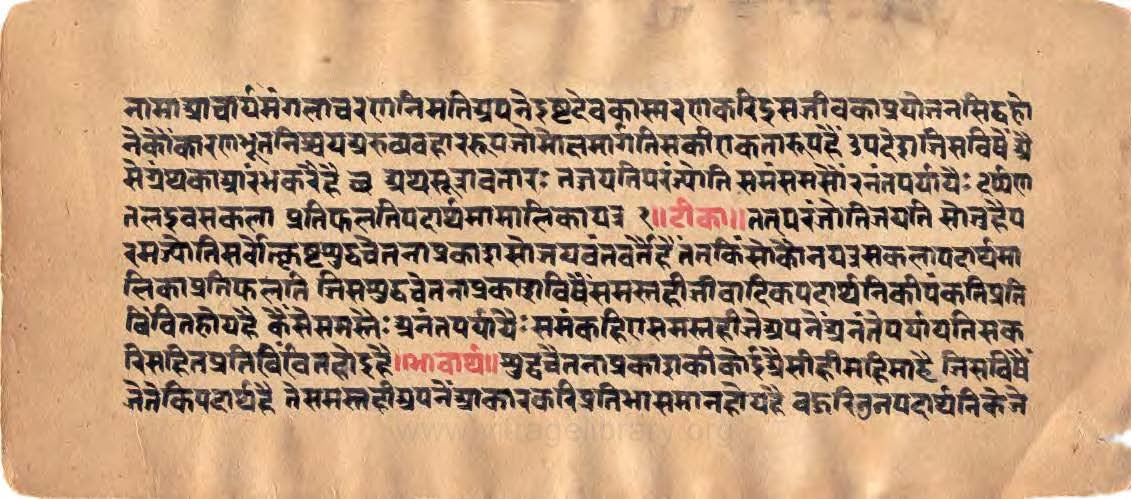 नामा आचार्य मंगलाचरण निमति अपने इष्ट देव का स्मरण करि इस जीव का प्रयोजन सिद्ध हो
ने कौं कारणभूत निश्चय अरु व्यवहार रूप जो मोक्षमार्ग तिस की एकता रूप है उपदेश जिस विषें अै
सें ग्रंथ का प्रारंभ करै है अथ सूत्रावतारः तज्जयति परंज्योति समं समस्तैरनंतपर्यायैः दर्प्पण
तल इव सकला प्रतिफलति पदार्थमालिका यत्र १ ॥टीका॥ तत् परंजोति जयति सो जु है प
रमज्योति सर्वोत्कृष्ट शुद्ध चेतना प्रकाश सो जयवंत वर्तै है तत किं सो कौन यत्र सकला पदार्थमा
लिका प्रतिफलति जिस शुद्ध चेतना प्रकाश विषैं समस्त ही जीवादिक पदार्थनि की पंकति प्रति
बिंबित होय है कैसे समस्तैः अनंतपर्यायैः समं कहिए समस्त ही जे अपने अनंते पर्याय तिस क
रि सहित प्रतिबिंबित होइ है ॥भावार्थ॥ शुद्ध चेतना प्रकाश की कोई अैसी ही महिमा है जिस विषैं
जेते कि पदार्थ है ते समस्त ही अपने आकार करि प्रतिभासमान होय है बहुरि उन पदार्थनि के जे
www.vitragelibrary.org